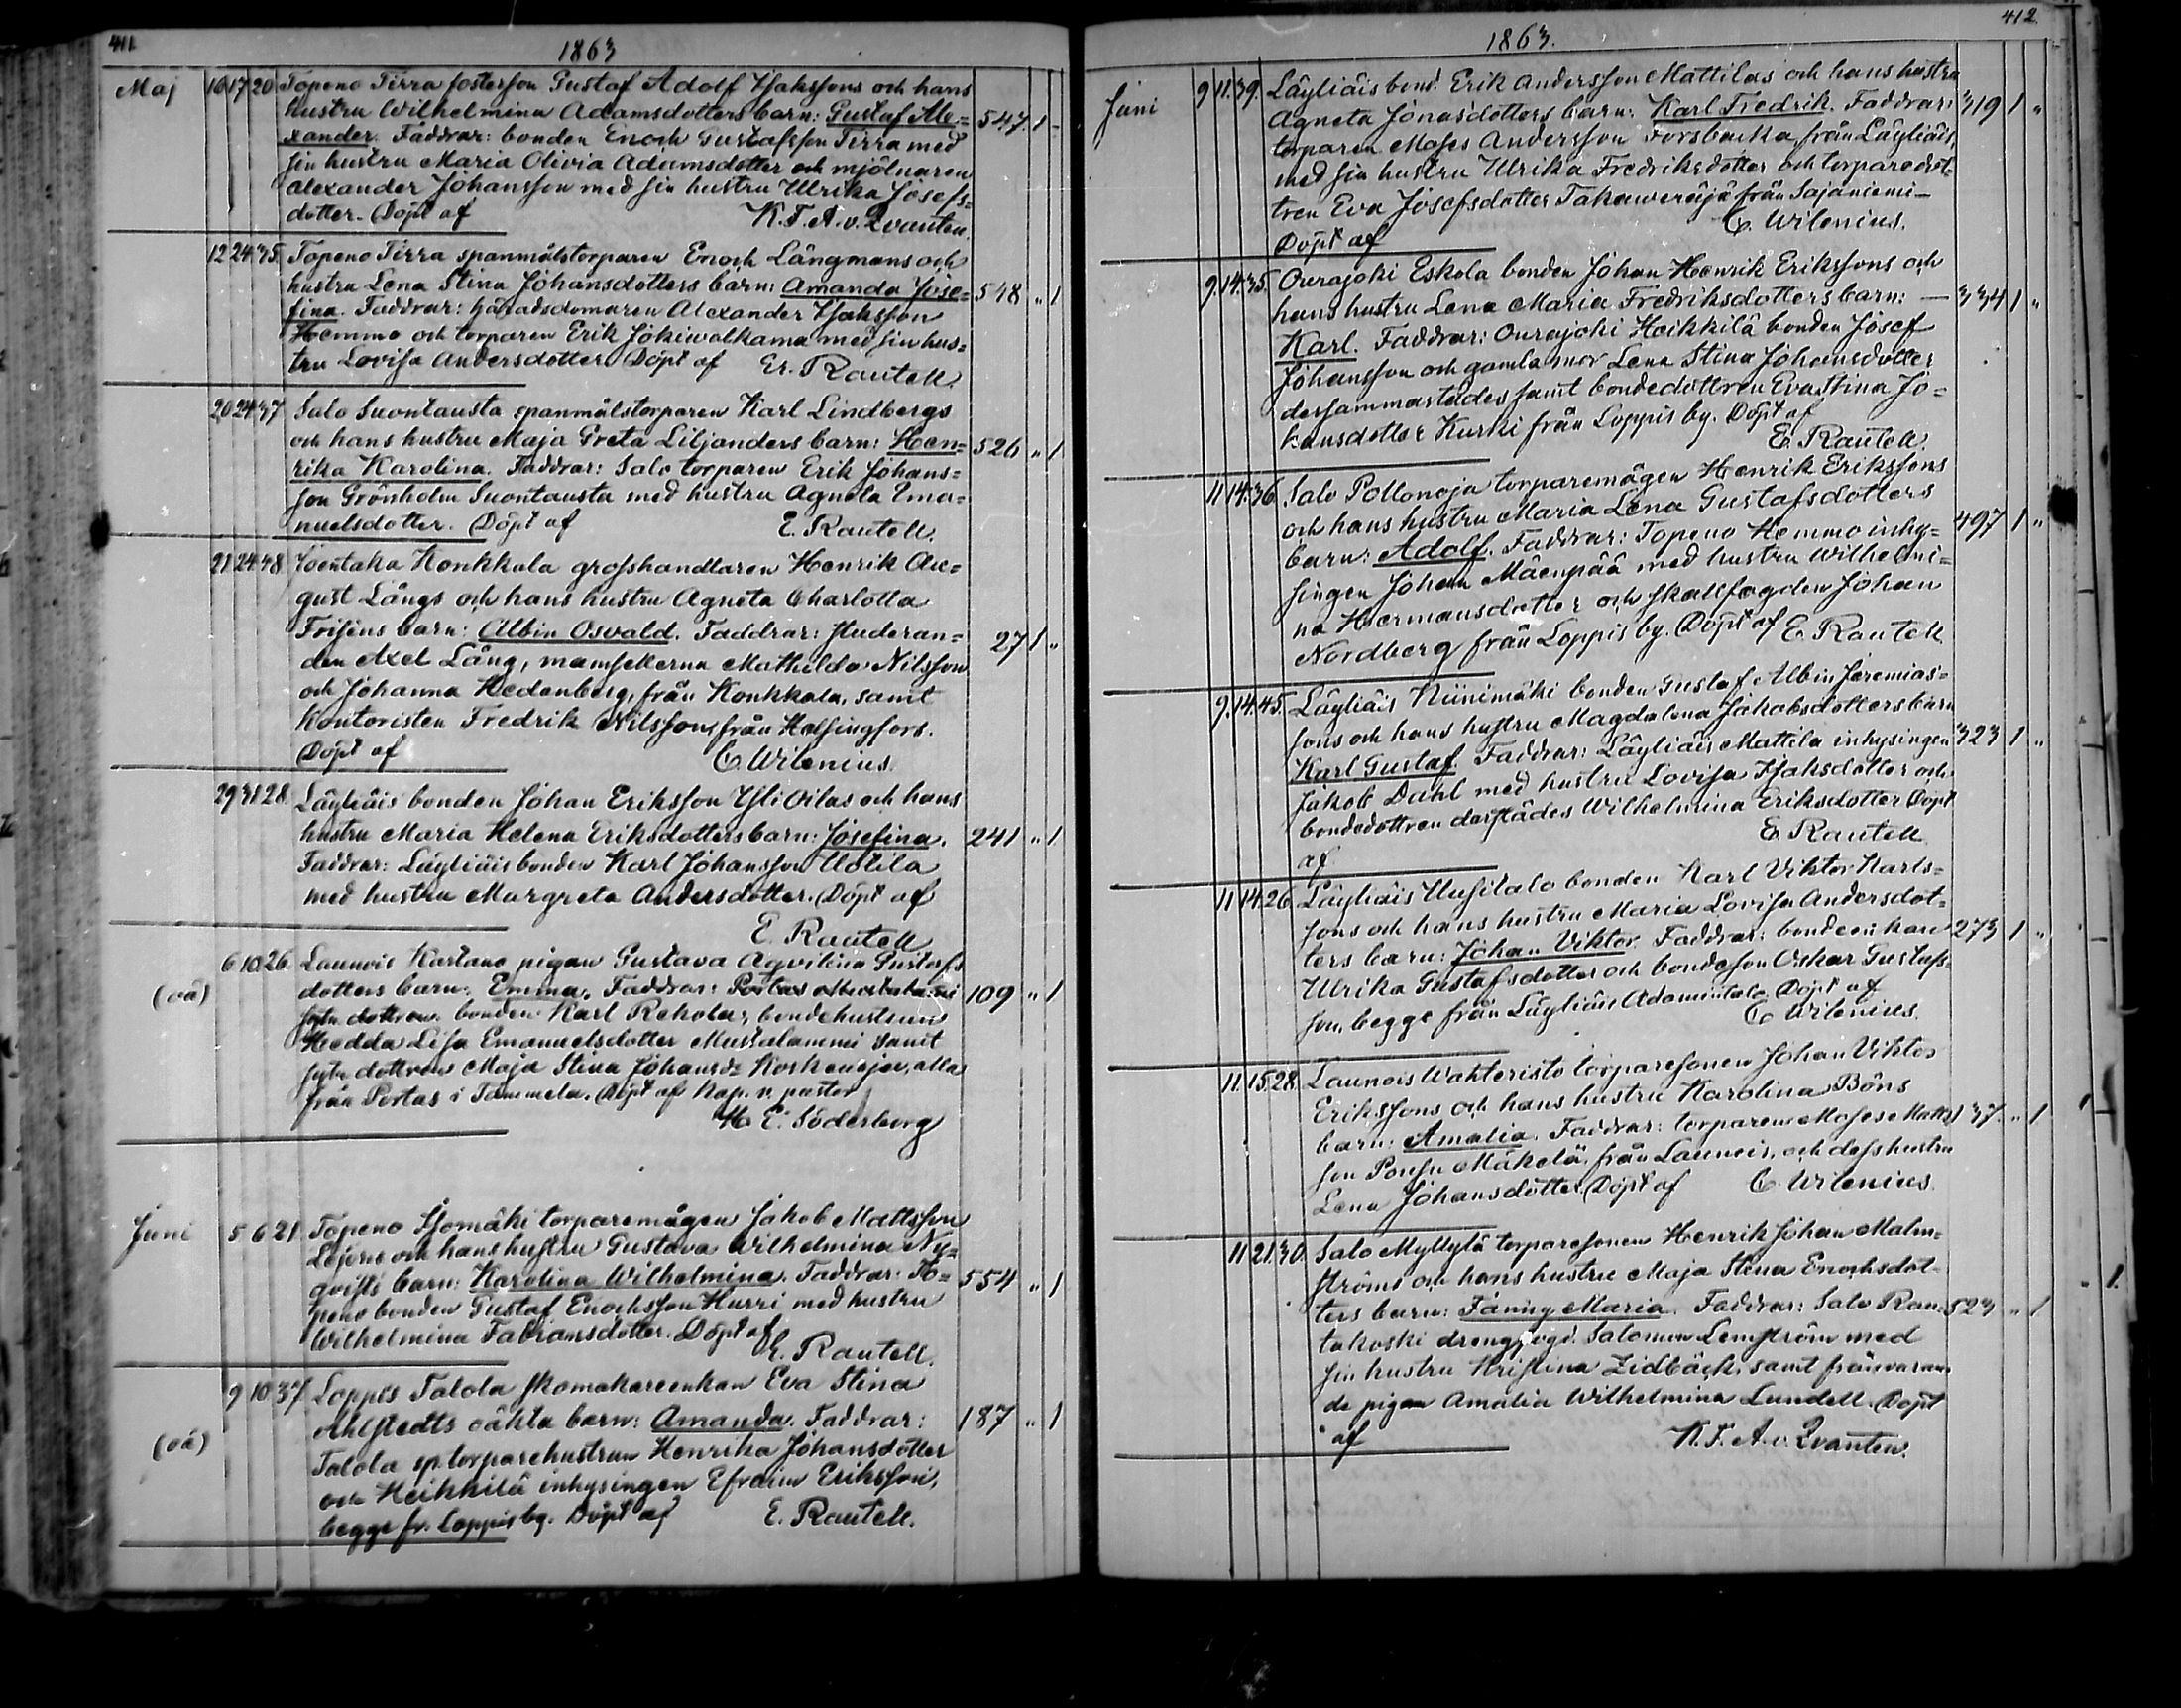 411
1863
Maj 16 17 20 Topeno Tirra fosterson Gustaf Adolf Isakssons och hans
hustru Wilhelmina Adamsdotters barn: Gustaf Ale= 547. 1 -
xander. Faddrar: bonden Enoch Gustafsson Tirra med
sin hustru Maria Olivia Adamsdotter och mjölnaren
Alexander Johansson med sin hustru Ulrika Josefs=
dotter. Döpt af K. F. A. v. Qvanten.
12 24 35. Topeno Tirra spanmålstorparen Enoch Långmans och
hustru Lena Stina Johansdotters barn: Amanda Jose= 548 " 1
fina. Faddrar: häradsdomaren Alexander Isaksson
Hemmo och torparen Erik Jokiwalkama med sin hus=
tru Lovisa Andersdotter. Döpt af Er. Rautell.
20 24 37 Salo Suontausta spanmålstorparen Karl Lindbergs
och hans hustru Maja Greta Liljanders barn: Hen= 526 " 1
rika Karolina. Faddrar: Salo torparen Erik Johans=
son Grönholm Suontausta med hustru Agneta Ema=
nuelsdotter. Döpt af E. Rautell.
21 24 48 Joentaka Konkkala grosshandlaren Henrik Au=
gust Långs och hans hustru Agneta Charlotta
Friséns barn: Albin Osvald. Faddrar: studeran= 27 1 "
den Axel Lång, mamsellerna Mathilda Nilsson
och Johanna Hedenberg, från Konkkala, samt
Kontoristen Fredrik Nilsson, från Helsingfors.
Döpt af C. Wilenius.
29 31 28 Läyliäis bonden Johan Eriksson Yli Oilas och hans
hustru Maria Helena Eriksdotters barn: Josefina. 241 " 1
Faddrar: Läyliäis bonden Karl Johansson Uotila
med hustru Margreta Andersdotter. Döpt af
E. Rautell
(oä) 6 10 26. Launois Kartano pigan Gustava Aqvilina Gustafs
dotters barn: Emma. Faddrar: Portas
dottren bonden Karl Rehola, bondehustrun
Hedda Lisa Emanuelsdotter Mustalammi samt 109 " 1
dottren Maja Stina Johansd: Koskenoja, alla
från Portas i Tammela. Döpt af Kap. v. pastor
H. E. Söderberg
Juni 5 6 21. Topeno Isomäki torparemågen Jakob Mattsson
Lejons och hans hustru Gustava Wilhelmina Ny=
qvists barn: Karolina Wilhelmina. Faddrar: To= 554 " 1
peno bonden Gustaf Enochsson Hurri med hustru
Wilhelmina Fabiansdotter. Döpt af
E. Rautell.
9 10 37 Loppis Talola skomakareenkan Eva Stina
Ahlstedts oäkta barn: Amanda. Faddrar: 187 " 1
(oä) Talola sp.torparehustrun Henrika Johansdotter
och Heikkilä inhysingen Efraim Eriksson,
begge fr. Loppis by. Döpt af E. Rautell.
412.
1863.
Juni 9 11. 39. Läyliäis bond. Erik Andersson Mattilas och hans hustru
Agneta Jonasdotters barn: Karl Fredrik. Faddrar: 319 1 "
torparen Moses Andersson Forsbacka, från Läyliäis,
med sin hustru Ulrika Fredriksdotter och torparedot=
tren Eva Josefsdotter Takaweräjä från Sajaniemi -
Döpt af C. Wilenius.
9. 14. 35. Ourajoki Eskola bonden Johan Henrik Erikssons och
hans hustru Lena Maria Fredriksdotters barn: — 334 1 "
Karl. Faddrar: Ourajoki Heikkilä bonden Josef
Johansson och gamla mor Lena Stina Johansdotter
dersammastädes samt bondedottren Eva Stina Jo=
hansdotter Kurki från Loppis by. Döpt af
E. Rautell.
11 14. 36. Salo Pollonoja torparemågen Henrik Erikssons
och hans hustru Maria Lena Gustafsdotters
barn: Adolf. Faddrar: Topeno Hemmo inhy= 497 1 "
singen Johan Mäenpää med hustru Wilhelmi=
na Hermansdotter och skallfogden Johan
Nordberg från Loppis by. Döpt af E. Rautell
9. 14. 45. Läyliäis Niinimäki bonden Gustaf Albin Jeremias=
sons och hans hustru Magdalena Jakobsdotters barn
Karl Gustaf. Faddrar: Läyliäis Mattila inhysingen 323 1 "
Jakob Dahl med hustru Lovisa Isaksdotter och
bondedottren derstädes Wilhelmina Eriksdotter Döpt
af E. Rautell
11 14. 26. Läyliäis Uusitalo bonden Karl Viktor Karls=
sons och hans hustru Maria Lovisa Andersdot=
ters barn: Johan Viktor. Faddrar: bondeenkan 273 1 "
Ulrika Gustafsdotter och bondeson Oskar Gustafs=
son, begge från Läyliäis Adamintalo. Döpt af
C. Wilenius.
11. 15. 28. Launois Wahteristo torparesonen Johan Viktor
Erikssons och hans hustru Karolina Böns
barn: Amalia. Faddrar: torparen Moses Matts 137. " 1
son Ponsu Mäkelä, från Launois, och dess hustru
Lena Johansdotter. Döpt af C. Wilenius.
11 21. 30. Salo Myllylä torparesonen Henrik Johan Malm=
ströms och hans hustru Maja Stina Enochsdot=
ters barn: Fanny Maria. Faddrar: Salo Rau= 523 " 1
takoski drengs Salomon Lemström med
sin hustru Kristina Zidbäck, samt frånvaran
de pigan Amalia Wilhelmina Lundell. Döpt
af K. F. A. v. Qvanten.
1.